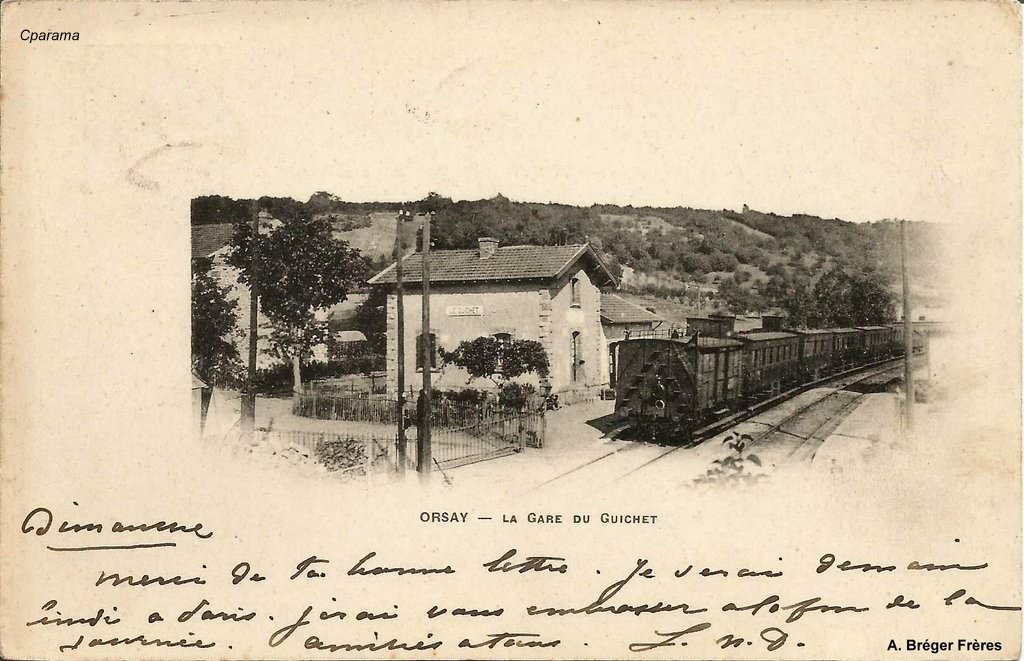 Cparama
LE GUICHET
ORSAY — LA GARE DU GUICHET
Dimanche
merci de ta bonne lettre. Je serai demain
lundi a Paris. j'irai vous embrasser a la fin de la
journée. amitiés a tous. L. n. D.
A. Bréger Frères